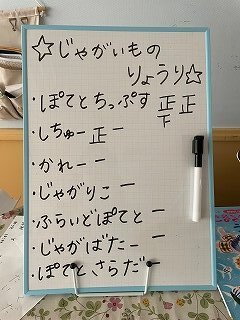 ☆じゃがいもの
りょうり☆
・ぽてとちっぷす 正 正
下
・しちゅー 正 一
・かれー 一
・じゃがりこ 一
・ふらいどぽてと 一
・じゃがばたー 一
・ぽてとさらだ 一